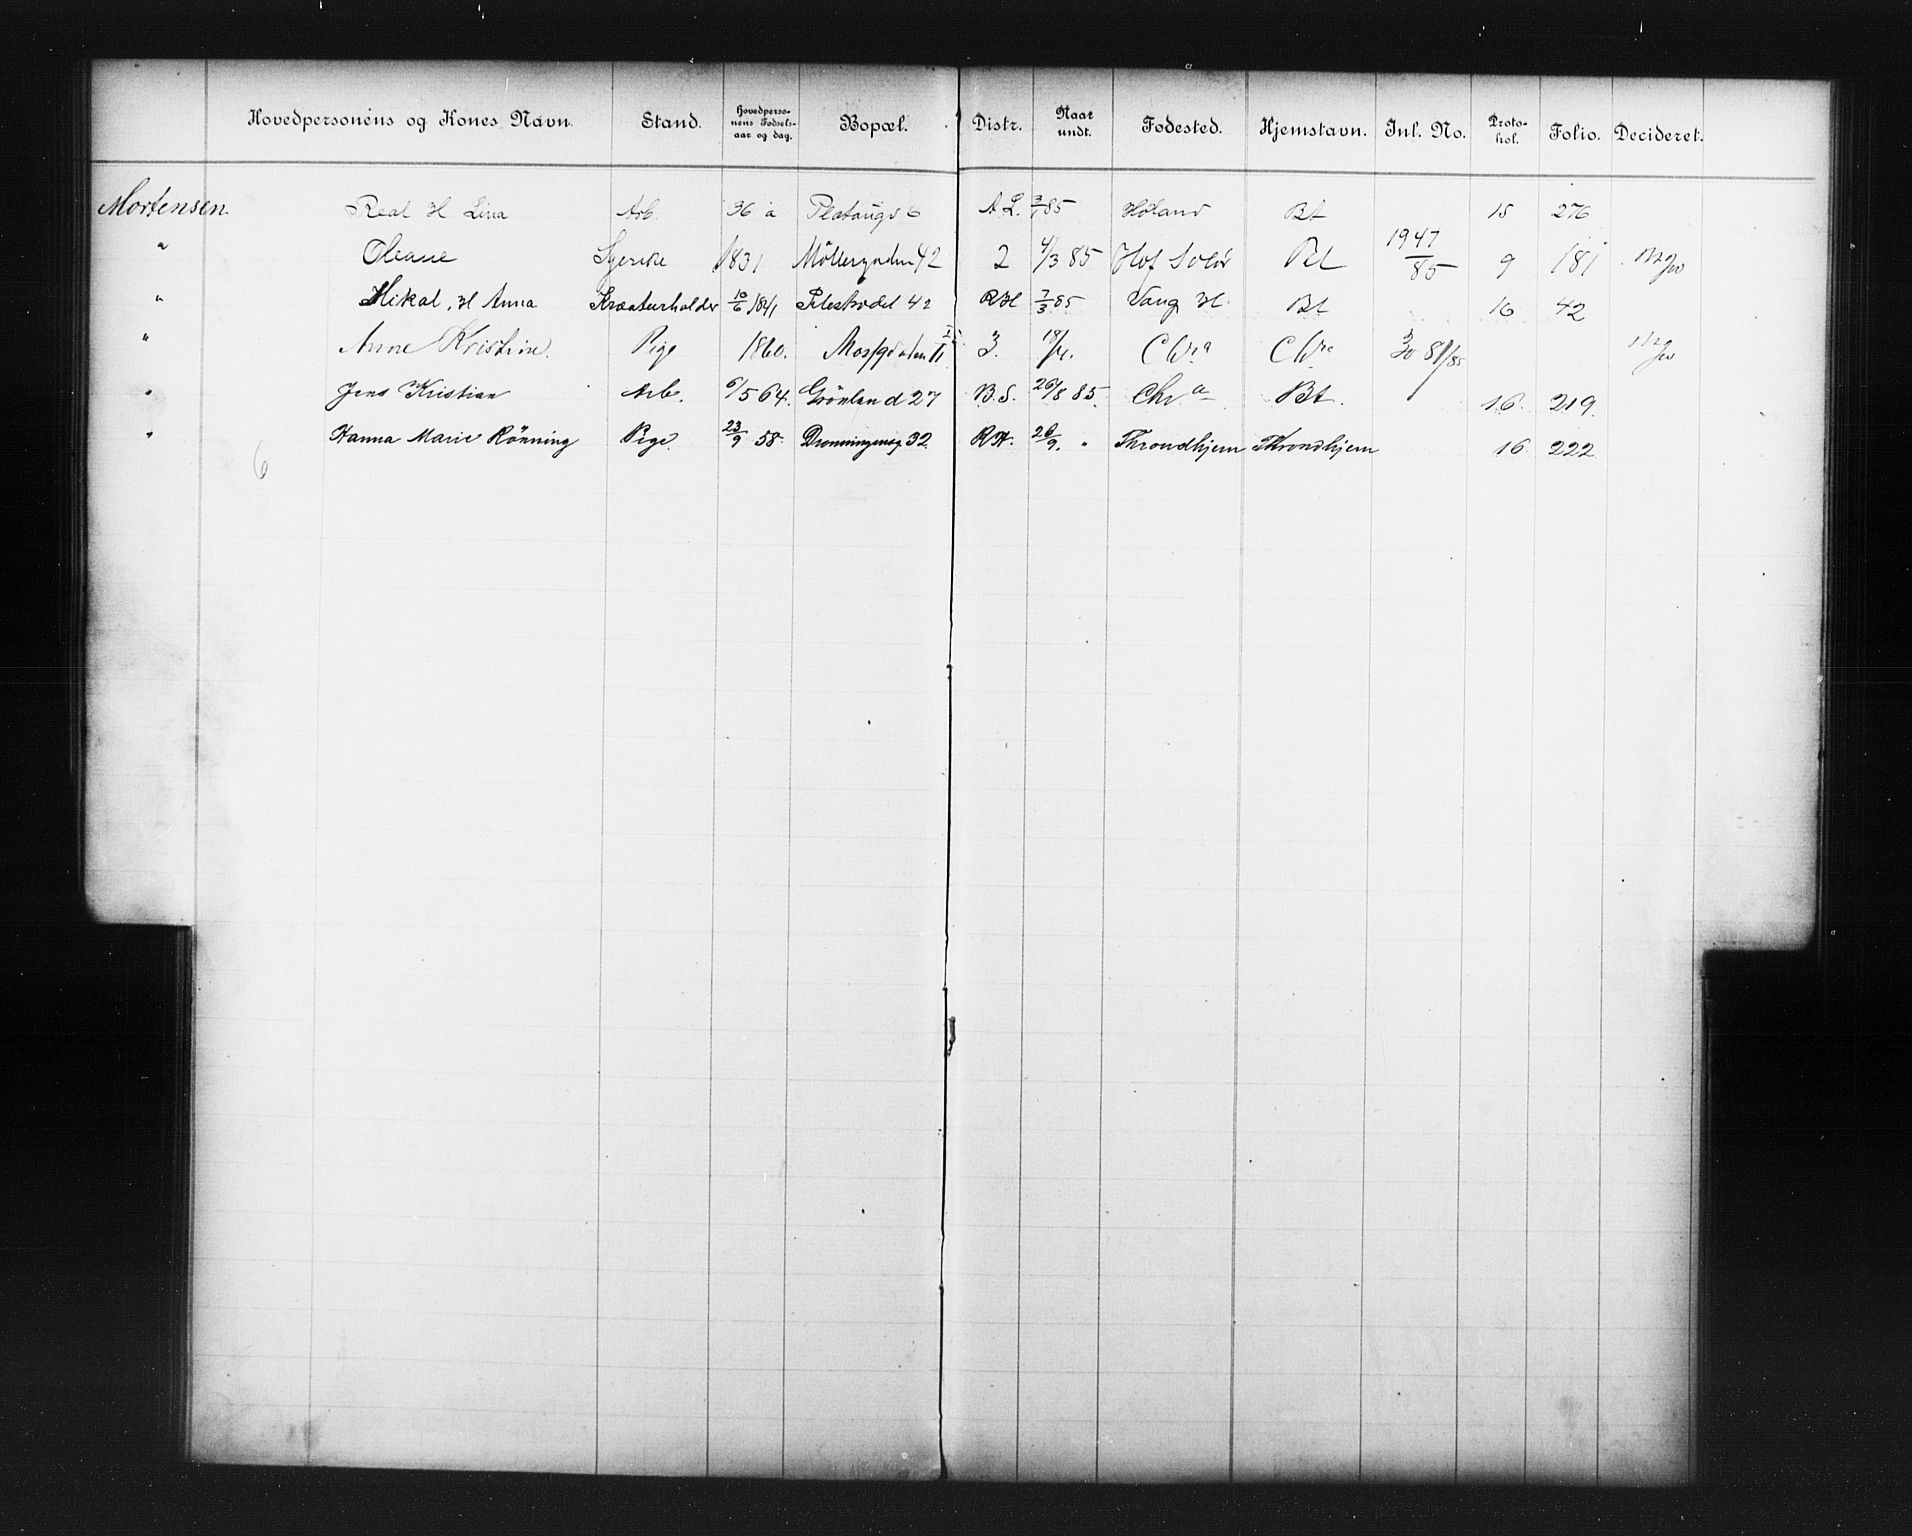 Hovedpersonens og Kones Navn. Stand. Hovedperso-nens Fødsels-aar og dag. Bopæl. Distr. Naar undt. Fødested. Hjemstavn. Inl. No. Proto-kol. Folio. Decideret.
Mortensen Real H Lina Arb. 36 a 6 A L. 3/1 85 Høland Bt 15 276
" Oleane Syerske 1831 Möllergaden 42 2 4/3 85 Hof Solör Bt 1947/85 9 181
" Mikal, H Anna Kreaturholder 10/6 1841 Pilestrædet 42 RH 7/3 85 Vang H. Bt 16 42
" Anne Kristine. Pige 1860. 3. 18/4. Chra Chra 81/85
" Jens Kristian Arb. 6/5 64. Grönland 27 B.S. 26/8 85. Chra Bt. 16. 219.
" Hanna Marie Rönning Pige. 23/9 58. Dronningensg 32. RH. 26/9. " Throndhjem Throndhjem 16. 222
6